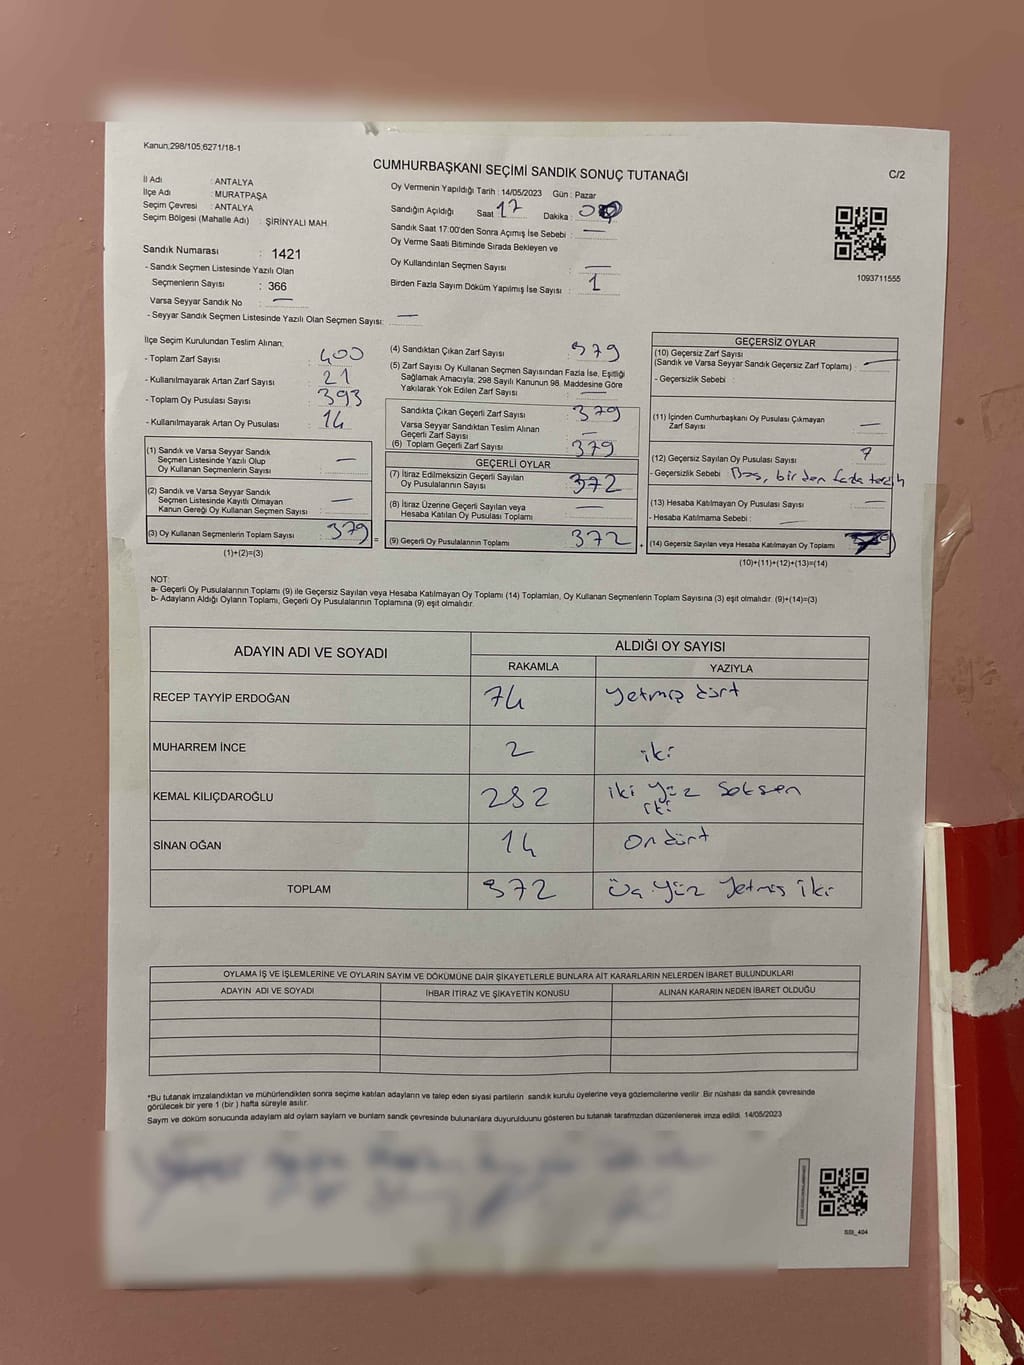 Kanun;298/105;6271/18-1
CUMHURBAŞKANI SEÇİMİ SANDIK SONUÇ TUTANAĞI
C/2
İl Adı : ANTALYA
İlçe Adı : MURATPAŞA
Seçim Çevresi : ANTALYA
Seçim Bölgesi (Mahalle Adı) : ŞİRİNYALI MAH.
Sandık Numarası : 1421
- Sandık Seçmen Listesinde Yazılı Olan
Seçmenlerin Sayısı : 366
Varsa Seyyar Sandık No : —
- Seyyar Sandık Seçmen Listesinde Yazılı Olan Seçmen Sayısı: —
Oy Vermenin Yapıldığı Tarih : 14/05/2023 Gün : Pazar
Sandığın Açıldığı Saat 17 Dakika :
Sandık Saat 17:00'den Sonra Açılmış İse Sebebi : —
Oy Verme Saati Bitiminde Sırada Bekleyen ve
Oy Kullandırılan Seçmen Sayısı : —
Birden Fazla Sayım Döküm Yapılmış İse Sayısı : 1
1093711555
İlçe Seçim Kurulundan Teslim Alınan;
- Toplam Zarf Sayısı : 400
- Kullanılmayarak Artan Zarf Sayısı : 21
- Toplam Oy Pusulası Sayısı : 393
- Kullanılmayarak Artan Oy Pusulası : 14
(1) Sandık ve Varsa Seyyar Sandık
Seçmen Listesinde Yazılı Olup
Oy Kullanan Seçmenlerin Sayısı : —
(2) Sandık ve Varsa Seyyar Sandık
Seçmen Listesinde Kayıtlı Olmayan
Kanun Gereği Oy Kullanan Seçmen Sayısı : —
(3) Oy Kullanan Seçmenlerin Toplam Sayısı : 379
(1)+(2)=(3)
=
(4) Sandıktan Çıkan Zarf Sayısı : 379
(5) Zarf Sayısı Oy Kullanan Seçmen Sayısından Fazla İse, Eşitliği
Sağlamak Amacıyla; 298 Sayılı Kanunun 98. Maddesine Göre
Yakılarak Yok Edilen Zarf Sayısı : —
Sandıkta Çıkan Geçerli Zarf Sayısı : 379
Varsa Seyyar Sandıktan Teslim Alınan
Geçerli Zarf Sayısı : —
(6) Toplam Geçerli Zarf Sayısı : 379
GEÇERLİ OYLAR
(7) İtiraz Edilmeksizin Geçerli Sayılan
Oy Pusulalarının Sayısı : 372
(8) İtiraz Üzerine Geçerli Sayılan veya
Hesaba Katılan Oy Pusulası Toplamı : —
(9) Geçerli Oy Pusulalarının Toplamı : 372
GEÇERSİZ OYLAR
(10) Geçersiz Zarf Sayısı
(Sandık ve Varsa Seyyar Sandık Geçersiz Zarf Toplamı) : —
- Geçersizlik Sebebi :
(11) İçinden Cumhurbaşkanı Oy Pusulası Çıkmayan
Zarf Sayısı : —
(12) Geçersiz Sayılan Oy Pusulası Sayısı : 7
- Geçersizlik Sebebi Boş, birden fazla tercih
(13) Hesaba Katılmayan Oy Pusulası Sayısı : —
- Hesaba Katılmama Sebebi : —
(14) Geçersiz Sayılan veya Hesaba Katılmayan Oy Toplamı
(10)+(11)+(12)+(13)=(14)
NOT:
a- Geçerli Oy Pusulalarının Toplamı (9) ile Geçersiz Sayılan veya Hesaba Katılmayan Oy Toplamı (14) Toplamları, Oy Kullanan Seçmenlerin Toplam Sayısına (3) eşit olmalıdır. (9)+(14)=(3)
b- Adayların Aldığı Oyların Toplamı, Geçerli Oy Pusulalarının Toplamına (9) eşit olmalıdır.
ADAYIN ADI VE SOYADI
ALDIĞI OY SAYISI
RAKAMLA
YAZIYLA
RECEP TAYYİP ERDOĞAN 74 Yetmiş dört
MUHARREM İNCE 2 iki
KEMAL KILIÇDAROĞLU 282 iki yüz Seksen
iki
SİNAN OĞAN 14 On dört
TOPLAM 372 Üç Yüz Yetmiş iki
OYLAMA İŞ VE İŞLEMLERİNE VE OYLARIN SAYIM VE DÖKÜMÜNE DAİR ŞİKAYETLERLE BUNLARA AİT KARARLARIN NELERDEN İBARET BULUNDUKLARI
ADAYIN ADI VE SOYADI
İHBAR İTİRAZ VE ŞİKAYETİN KONUSU
ALINAN KARARIN NEDEN İBARET OLDUĞU
*Bu tutanak imzalandıktan ve mühürlendikten sonra seçime katılan adayların ve talep eden siyasi partilerin sandık kurulu üyelerine veya gözlemcilerine verilir. Bir nüshası da sandık çevresinde
görülecek bir yere 1 (bir ) hafta süreyle asılır.
Saym ve döküm sonucunda adaylam ald oylam saylam ve bunlam sandk çevresinde bulunanlara duyurulduunu gösteren bu tutanak tarafmzdan düzenlenerek imza edildi. 14/05/2023
SSI_404